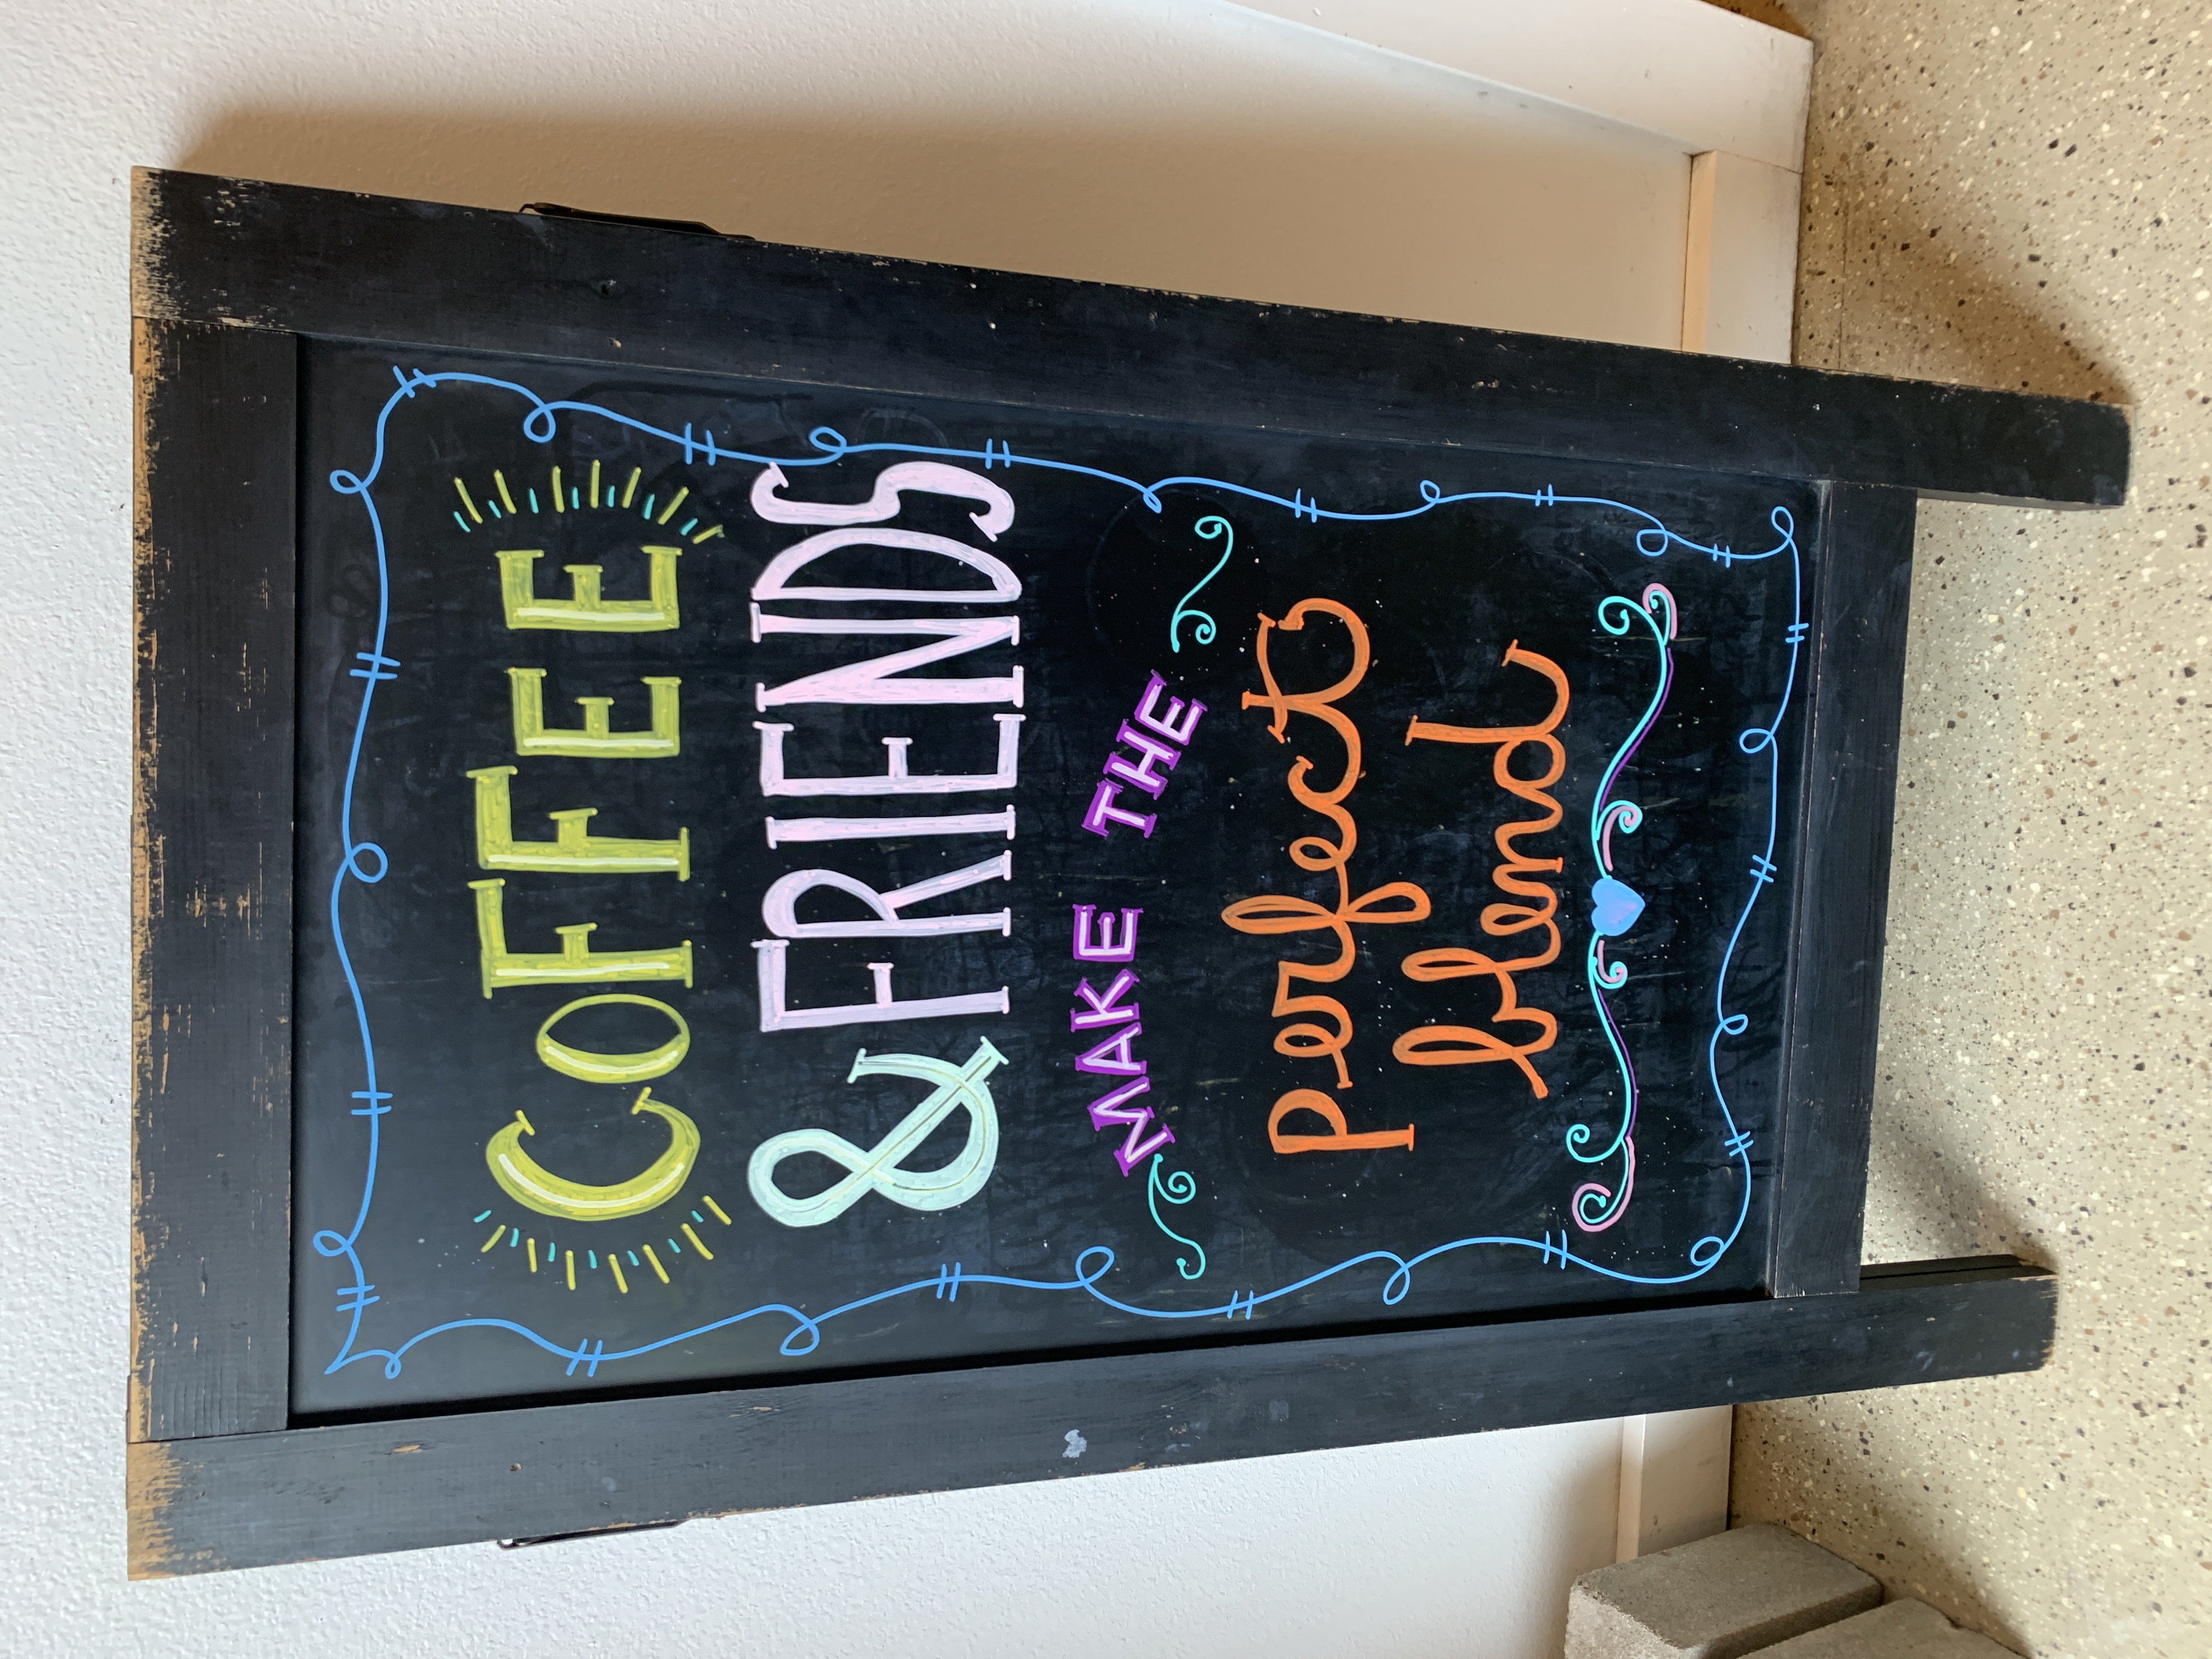 COFFEE
& FRIENDS
MAKE THE
perfect
blend